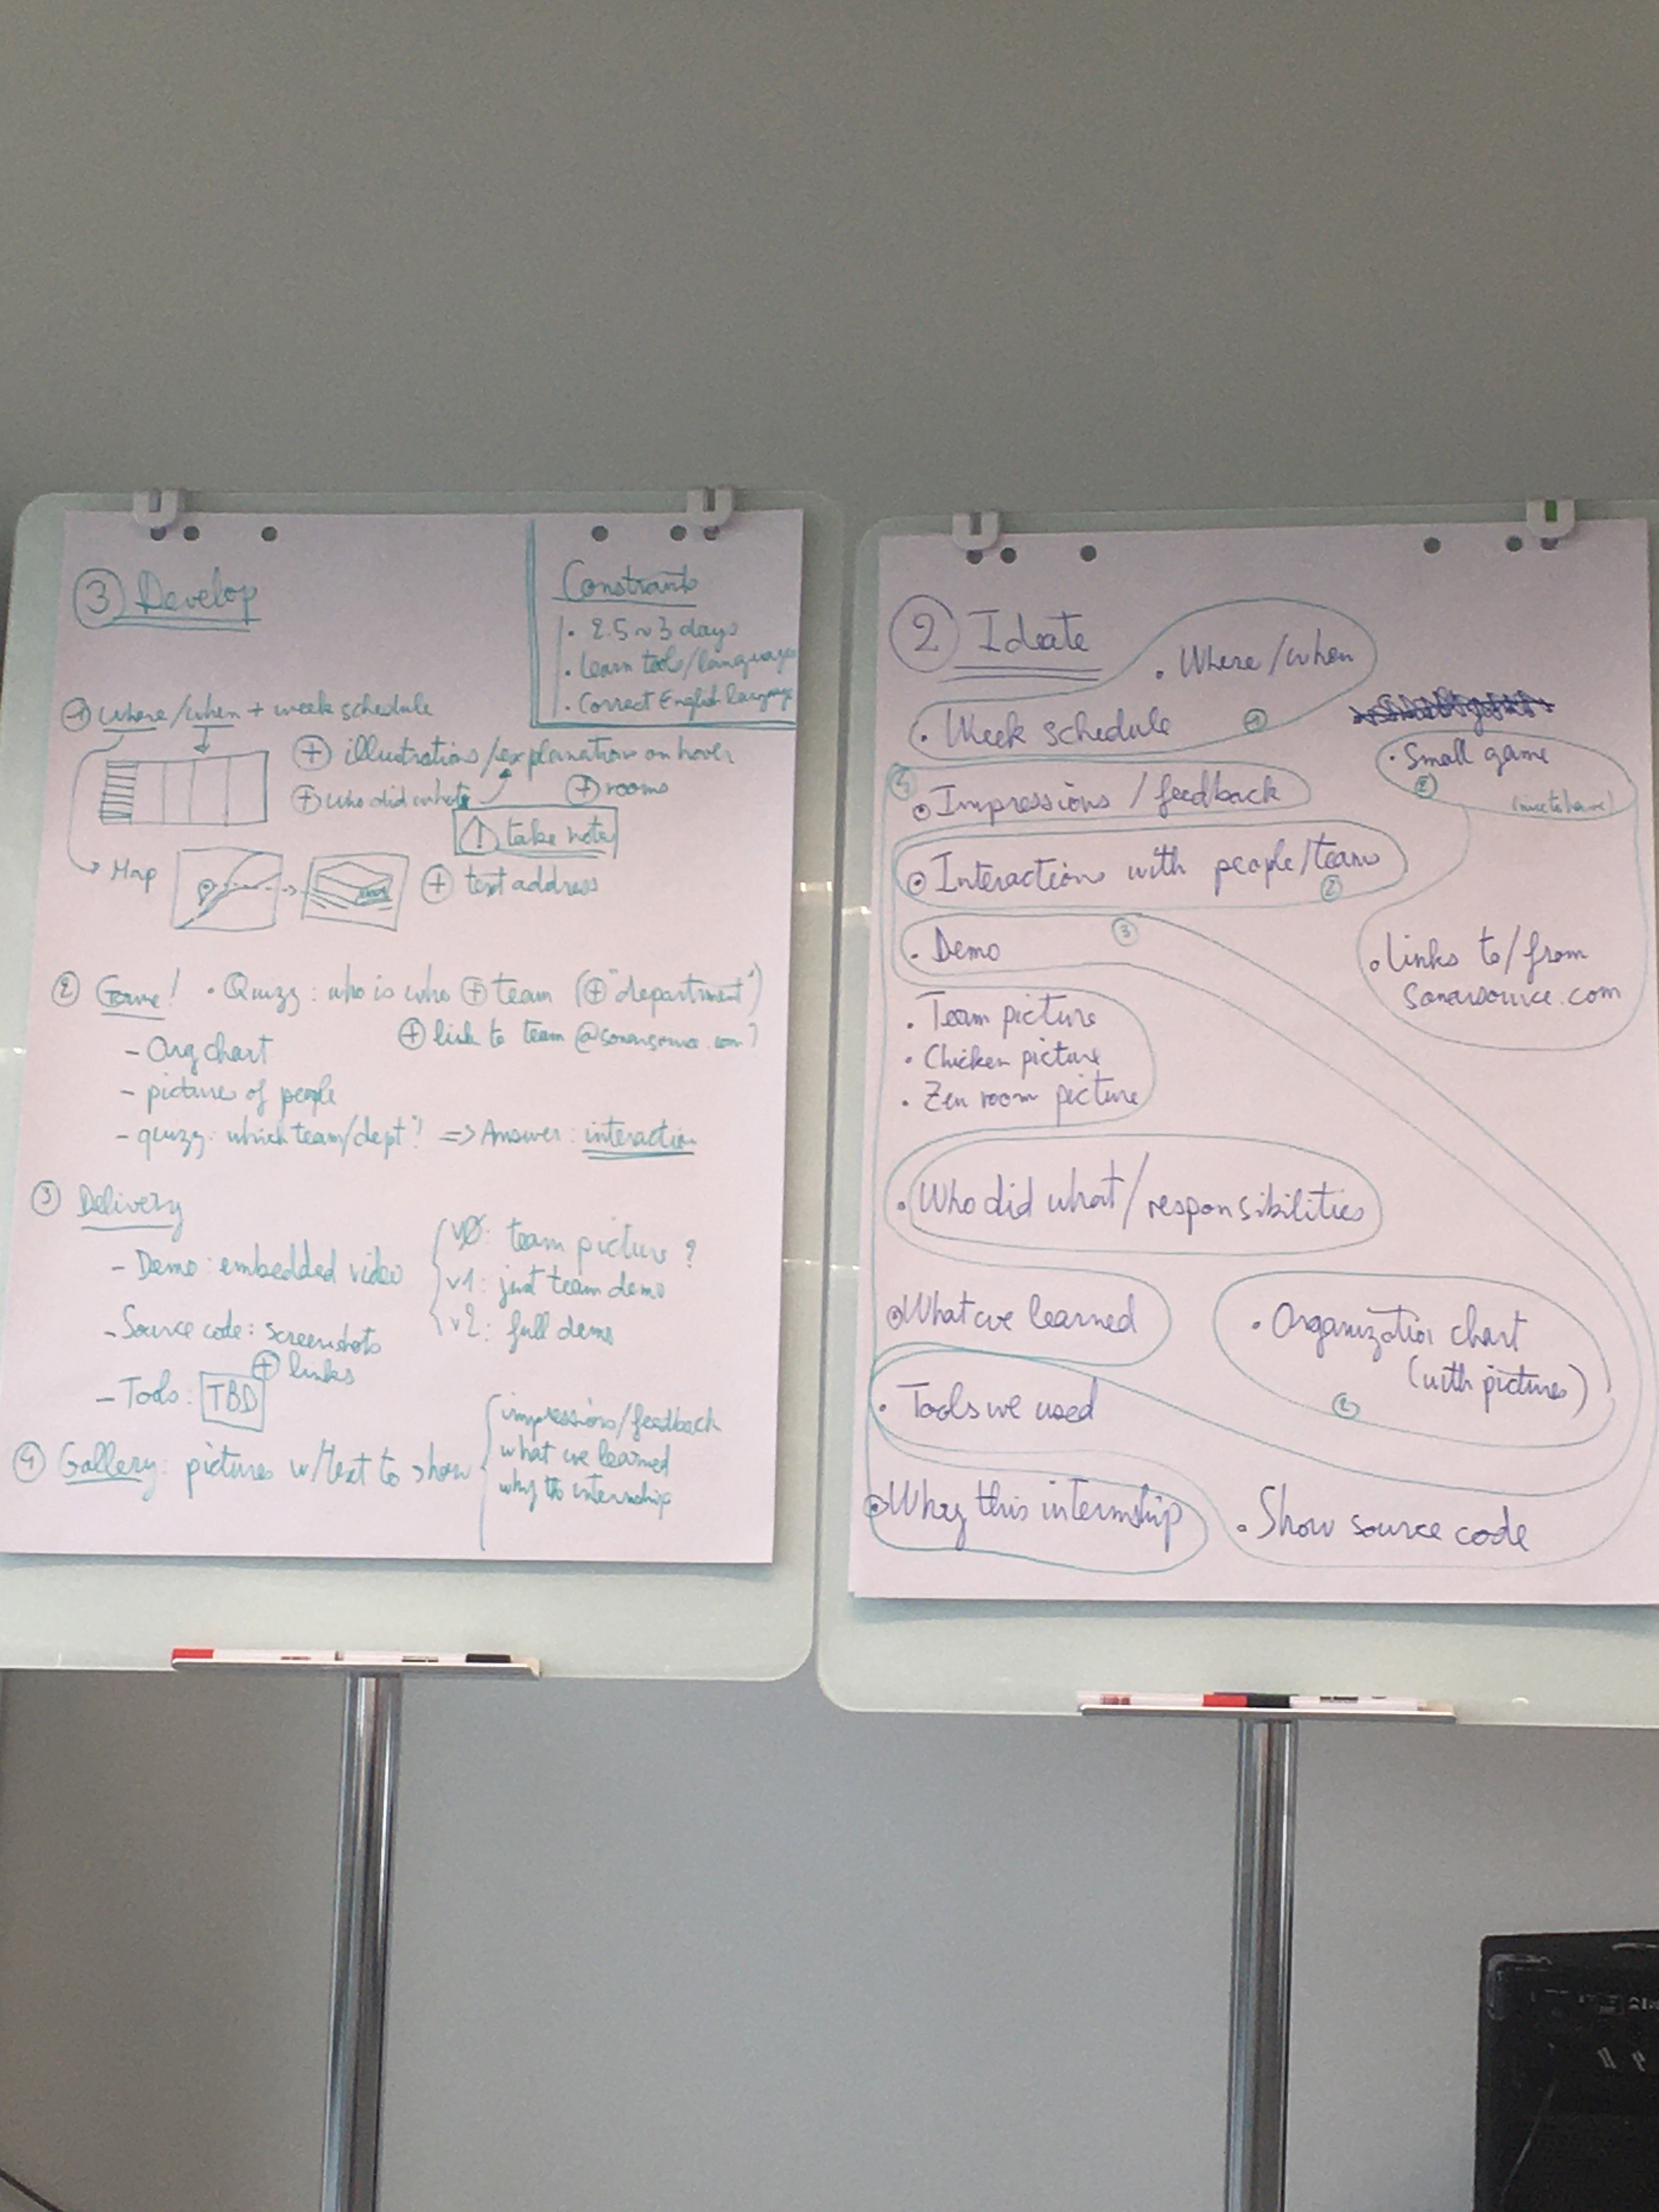 ③ Develop
Constraints
· 2.5 ~ 3 days
· Learn tools/languages
· Correct English language
① where/when + week schedule
⊕ illustrations/explanation on hover
⊕ who did what
⊕ rooms
! take notes
Map
⊕ text address
② Game! · Quizz: who is who ⊕ team (⊕ "department")
⊕ link to team @sonarsource.com?
- Org chart
- pictures of people
- quizz: which team/dept? => Answer: interaction
③ Delivery
- Demo: embedded video
v0: team picture?
v1: just team demo
v2: full demo
- Source code: screenshots
⊕ links
- Tools: TBD
④ Gallery: pictures w/text to show
impressions/feedback
what we learned
why this internship
② Ideate
· Where/when
· Week schedule ①
· Small game
② (nice to have)
④
· Impressions/feedback
· Interactions with people/teams
②
· Demo ③
· links to/from
sonarsource.com
· Team picture
· Chicken picture
· Zen room picture
· Who did what/responsibilities
· What we learned
· Organization chart
(with pictures)
②
· Tools we used
· Why this internship
· Show source code